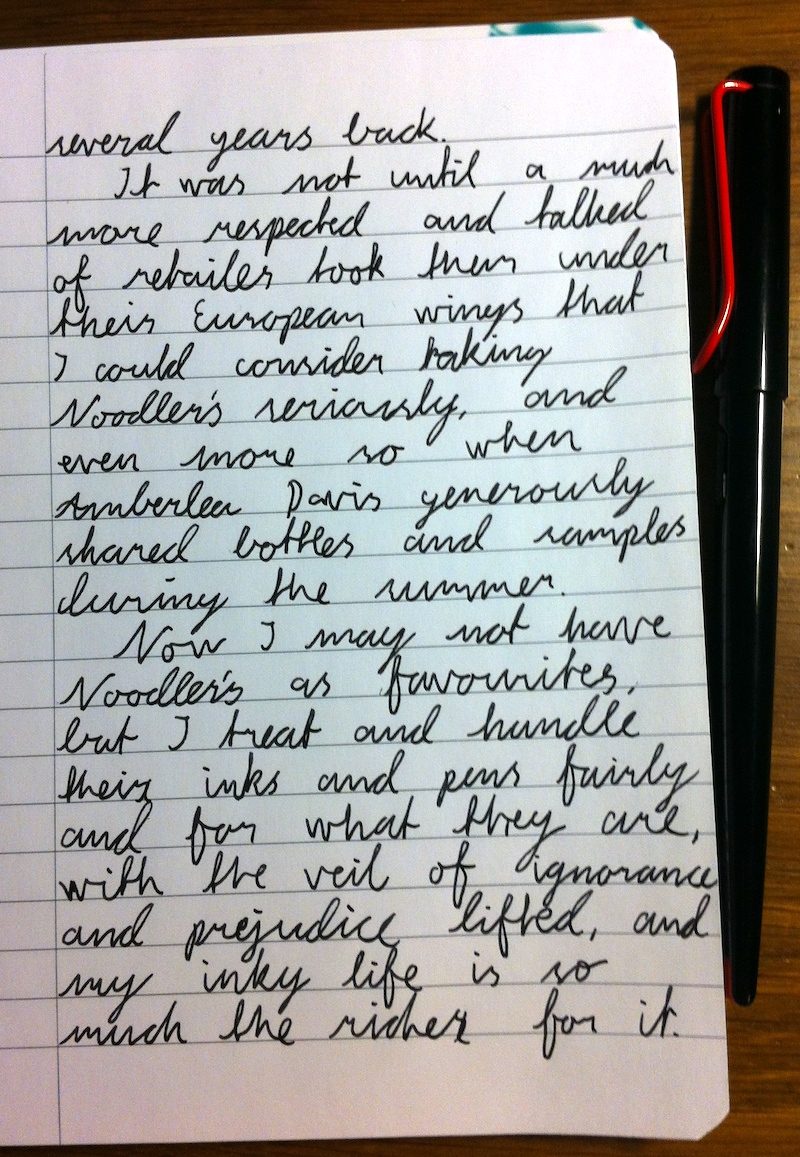 several years back.
It was not until a much
more respected and talked
of retailer took them under
their European wings that
I could consider taking
Noodler's seriously, and
even more so when
Amberlea Davis generously
shared bottles and samples
during the summer.
Now I may not have
Noodler's as favourites,
but I treat and handle
their inks and pens fairly
and for what they are,
with the veil of ignorance
and prejudice lifted, and
my inky life is so
much the richer for it.